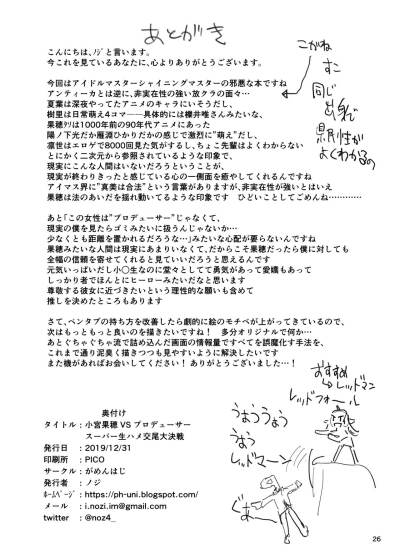 あとがき
こんにちは、ノジと言います。
今これを見ているあなたに、心よりありがとうございます。
今回はアイドルマスターシャイニングマスターの邪悪な本ですね
アンティーカとは逆に、非実在性の強い放クラの面々…
夏葉は深夜やってたアニメのキャラにいそうだし、
樹里は日常萌え4コマ――具体的には櫻井唯さんみたいな、
果穂ﾁｬﾘは1000年前の90年代アニメにあった
陽ノ下光だか雁淵ひかりだかの感じで激烈に"萌え"だし、
凛世はエロゲで8000回見た気がするし、ちょこ先輩はよくわからない
とにかく二次元から参照されているような印象で、
現実にこんな人間はいないだろうということが、
現実が終わりきったと感じている心の一側面を癒やしてくれるんですね
アイマス界に"真美は合法"という言葉がありますが、非実在性が強いとはいえ
果穂は法のあいだを揺れ動いてるような印象です　ひどいことしてごめんね…………
あと「この女性は"プロデューサー"じゃなくて、
現実の僕を見たらゴミみたいに扱うんじゃないか…
少なくとも距離を置かれるだろうな…」みたいな心配が要らないんですね
果穂みたいな人間は現実にあまりいなくて、だからこそ果穂だったら僕に対しても
全幅の信頼を寄せてくれると見ていいだろうと思えるんです
元気いっぱいだし小〇生なのに堂々としてて勇気があって愛嬌もあって
しっかり者でほんとにヒーローみたいだなと思います
尊敬する彼女に近づきたいという理性的な願いも含めて
推しを決めたところもあります
さて、ペンタブの持ち方を改善したら劇的に絵のモチベが上がってきているので、
次はもっともっと良いのを描きたいですね！　多分オリジナルで何か…
あとぐちゃぐちゃ流で詰め込んだ画面の情報量ですべてを誤魔化す手法を、
これまで通り泥臭く描きつつも見やすいように解決したいです
また機があればお会いしてください！ありがとうございました…！
奥付け
タイトル：小宮果穂 VS プロデューサー
スーパー生ハメ交尾大決戦
発行日　：2019/12/31
印刷所　：PICO
サークル：がめんはじ
発行者　：ノジ
ﾎｰﾑﾍﾟｰｼﾞ：https://ph-uni.blogspot.com/
メール　：i.nozi.im@gmail.com
twitter　：@noz4_
こがね
すこ
同じ
県民性が
よくわかるの
おすすめ
レッドマン
レッドフォール
うおううおう
うおう
レッドマーン
ぐあー
26